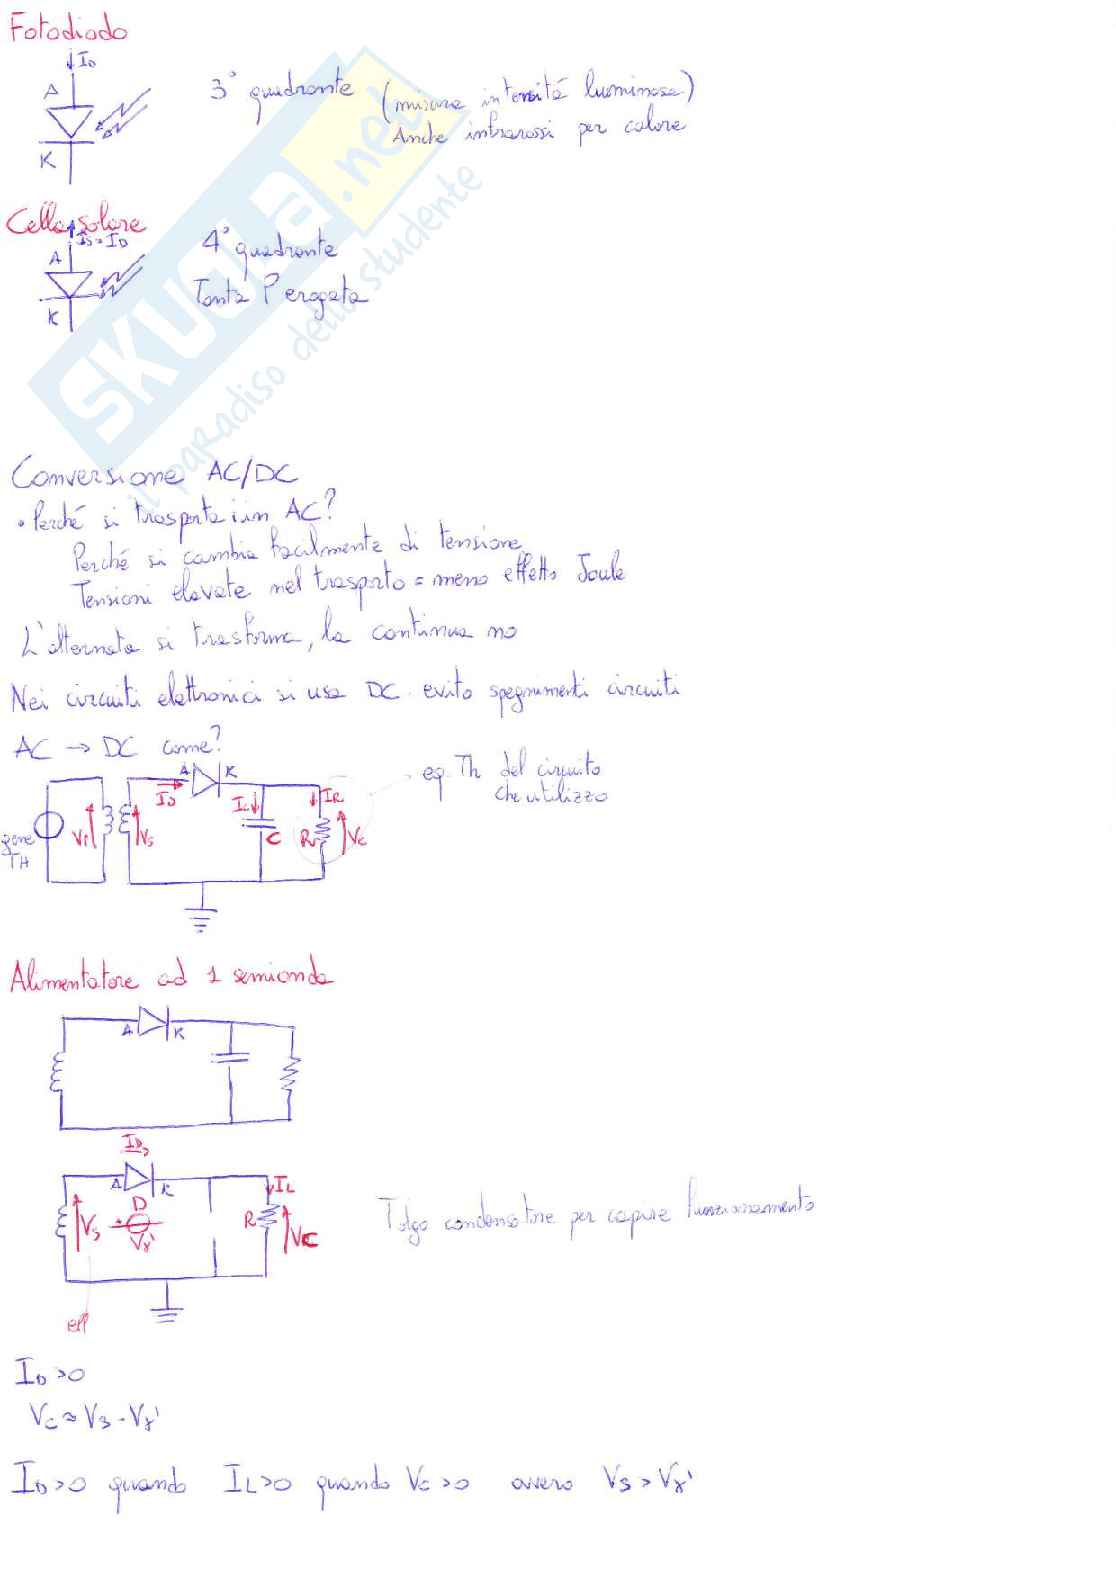 Fotodiodo
I_D
A
K
3° quadrante (misura intensità luminosa)
Anche infrarossi per calore
Cella solare
I_S = I_D
A
K
4° quadrante
Tanta P erogata
SKUOLA.net
il paradiso dello studente
Conversione AC/DC
• Perché si trasporta in AC?
Perché si cambia facilmente di tensione
Tensioni elevate nel trasporto = meno effetto Joule
L'alternata si trasforma, la continua no
Nei circuiti elettronici si usa DC evito spegnimenti circuiti
AC → DC come?
A K
I_D
I_C
I_R
V_1
V_S
C
R
V_C
TH
eq. Th del circuito
che utilizzo
Alimentatore ad 1 semionda
A K
I_D
A K
I_L
V_S
D
Vγ'
R
V_C
eff
Tolgo condensatore per capire funzionamento
I_D >0
V_C ≈ V_S - Vγ'
I_D >0 quando I_L >0 quando V_C >0 ovvero V_S > Vγ'